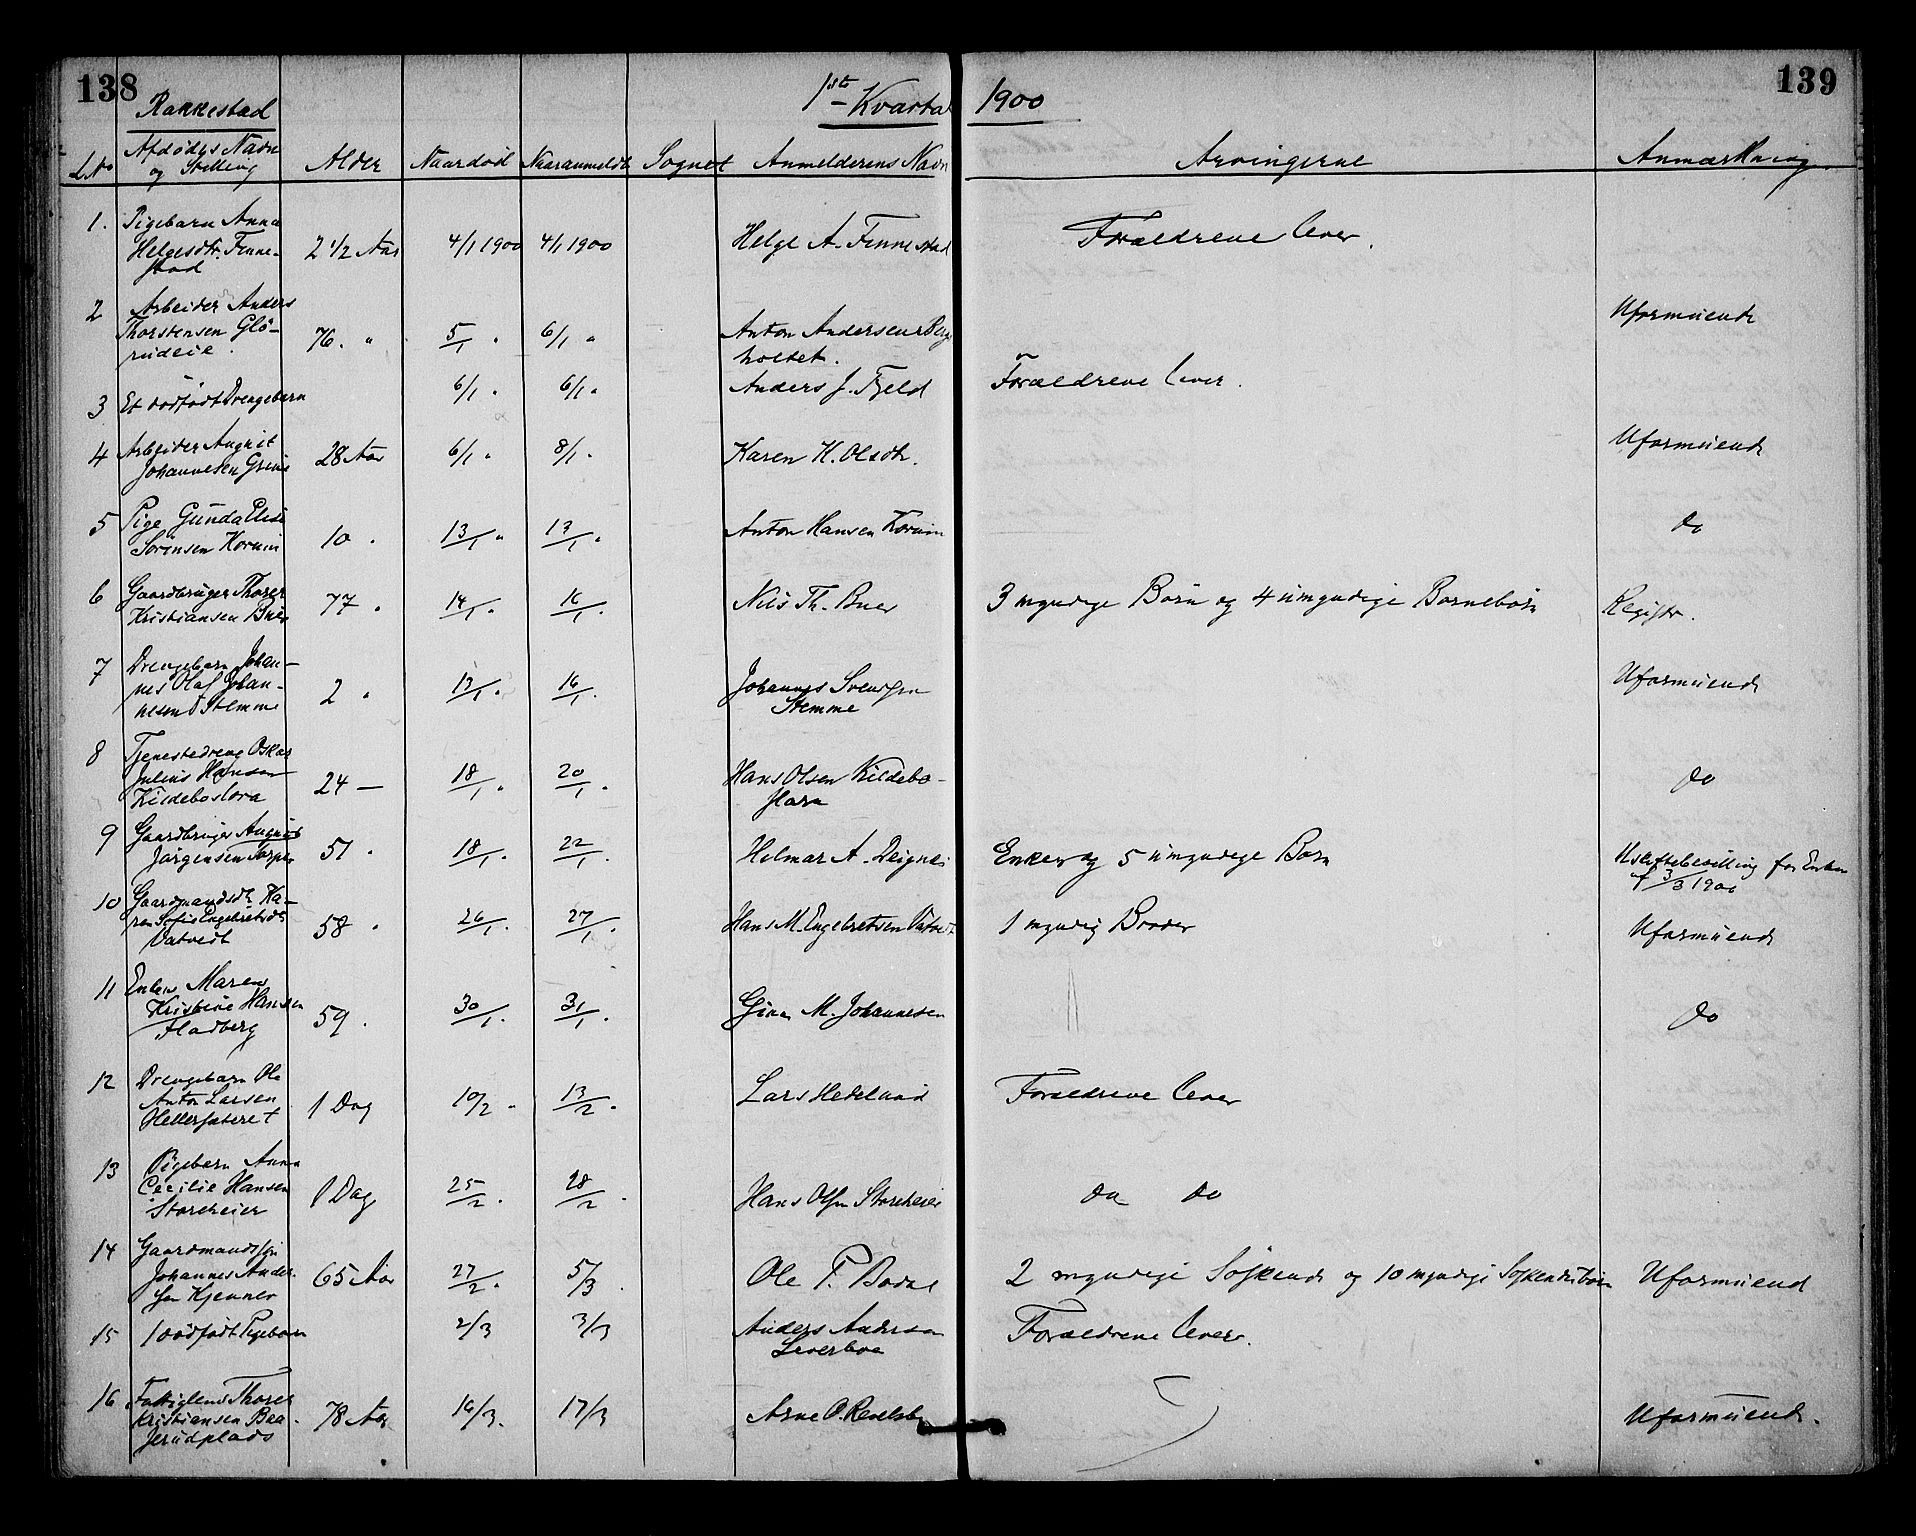 138
139
Rakkestad
1ste Kvartal 1900
L.No Afdødes Navn og Stilling Alder Naar død Naar anmeldt Sognet Anmelderens Navn Arvingerne Anmærkning
1. Pigebarn Anna
Helgesdtr. Finne-
stad 2 1/2 Aar 4/1 1900 4/1 1900 Helge A. Finnestad Forældrene lever.
2 Arbeider Anders
Thorstensen Glö-
rudeie. 76. " 5/1 " 6/1 " Anton Andersen Berg
holtet. Uformuende
3 Et dødfødt Drengebarn 6/1 " 6/1 " Anders J. Fjeld Forældrene lever.
4 Arbeider August
Johannesen Grini 28 Aar 6/1 " 8/1 " Karen H. Olsdtr. Uformuende
5 Pige Gunda Elise
Sørensen Kornni 10 " 13/1 " 13/1 " Anton Hansen do
6 Gaardbruger Thorer
Kristiansen Buer 77 " 14/1 " 16/1 " Nils Th. Buer 3 myndige Børn og 4 umyndige Børnebørn Registr.
7 Drengebarn Johan-
nes Olaf Johan-
nesen Stemme 2 " 13/1 " 16/1 " Johannes Svendsen
Stemme Uformuende
8 Tjenestedreng Oskar
Julius Hansen
Kildeboslora 24 — 18/1 " 20/1 " Hans Olsen Kildebo-
slora do
9 Gaardbruger August
Jørgensen Torper 51 " 18/1 " 22/1 " Helmar A. Enke og 5 umyndige Børn Uskiftebevilling for Enken
f 3/3 1900
10 Gaardmandsdtr. Ka-
ren Sofie Engebretsdtr
Vatvedt 58 " 26/1 " 27/1 " Hans M. Engebretsen Vatvedt 1 myndig Broder Uformuende
11 Enken Maren
Kristine Hansen
Fladberg 59. 30/1 " 31/1 " Gina M. Johannesen do
12 Drengebarn Ole
Anton Larsen
Hellersæteret 1 Dag 10/2 " 13/2 " Lars Hedelund Forældrene lever
13 Pigebarn Anna
Cecilie Hansen
Storeheier 1 Dag 25/2 " 28/2 " Hans Olsen Storeheier do do
14 Gaardmandssøn
Johannes Ander-
sen Kjenner 65 Aar 27/2 " 5/3 " Ole T. 2 myndige Søskende og 10 myndige Søskendebørn Uformuend
15 1 dødfødt Pigebarn 2/3 3/3 Anders Andersen
Leverbye Forældrene lever.
16 Fattiglem Thorer
Kristiansen Bra-
jerudplads 78 Aar 16/3. 17/3 Arne O. Uformuende.